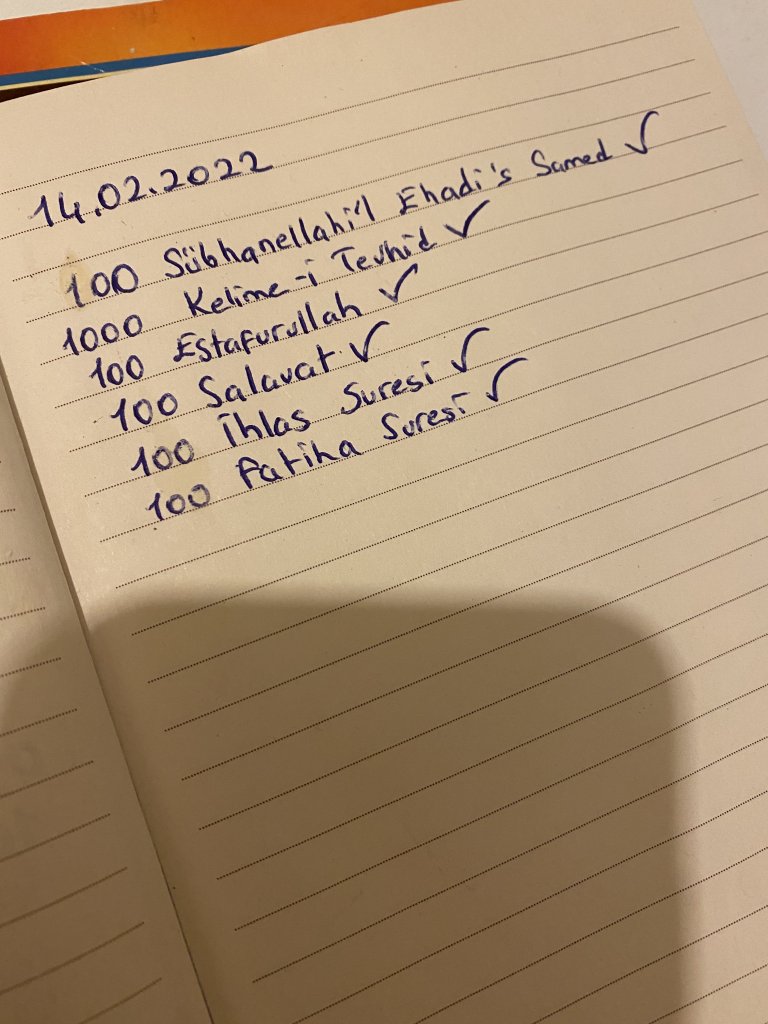 14.02.2022
100 Sübhanellahi'l Ehadi's Samed ✓
1000 Kelime-i Tevhid ✓
100 Estafurullah ✓
100 Salavat ✓
100 İhlas Suresi ✓
100 Fatiha Suresi ✓